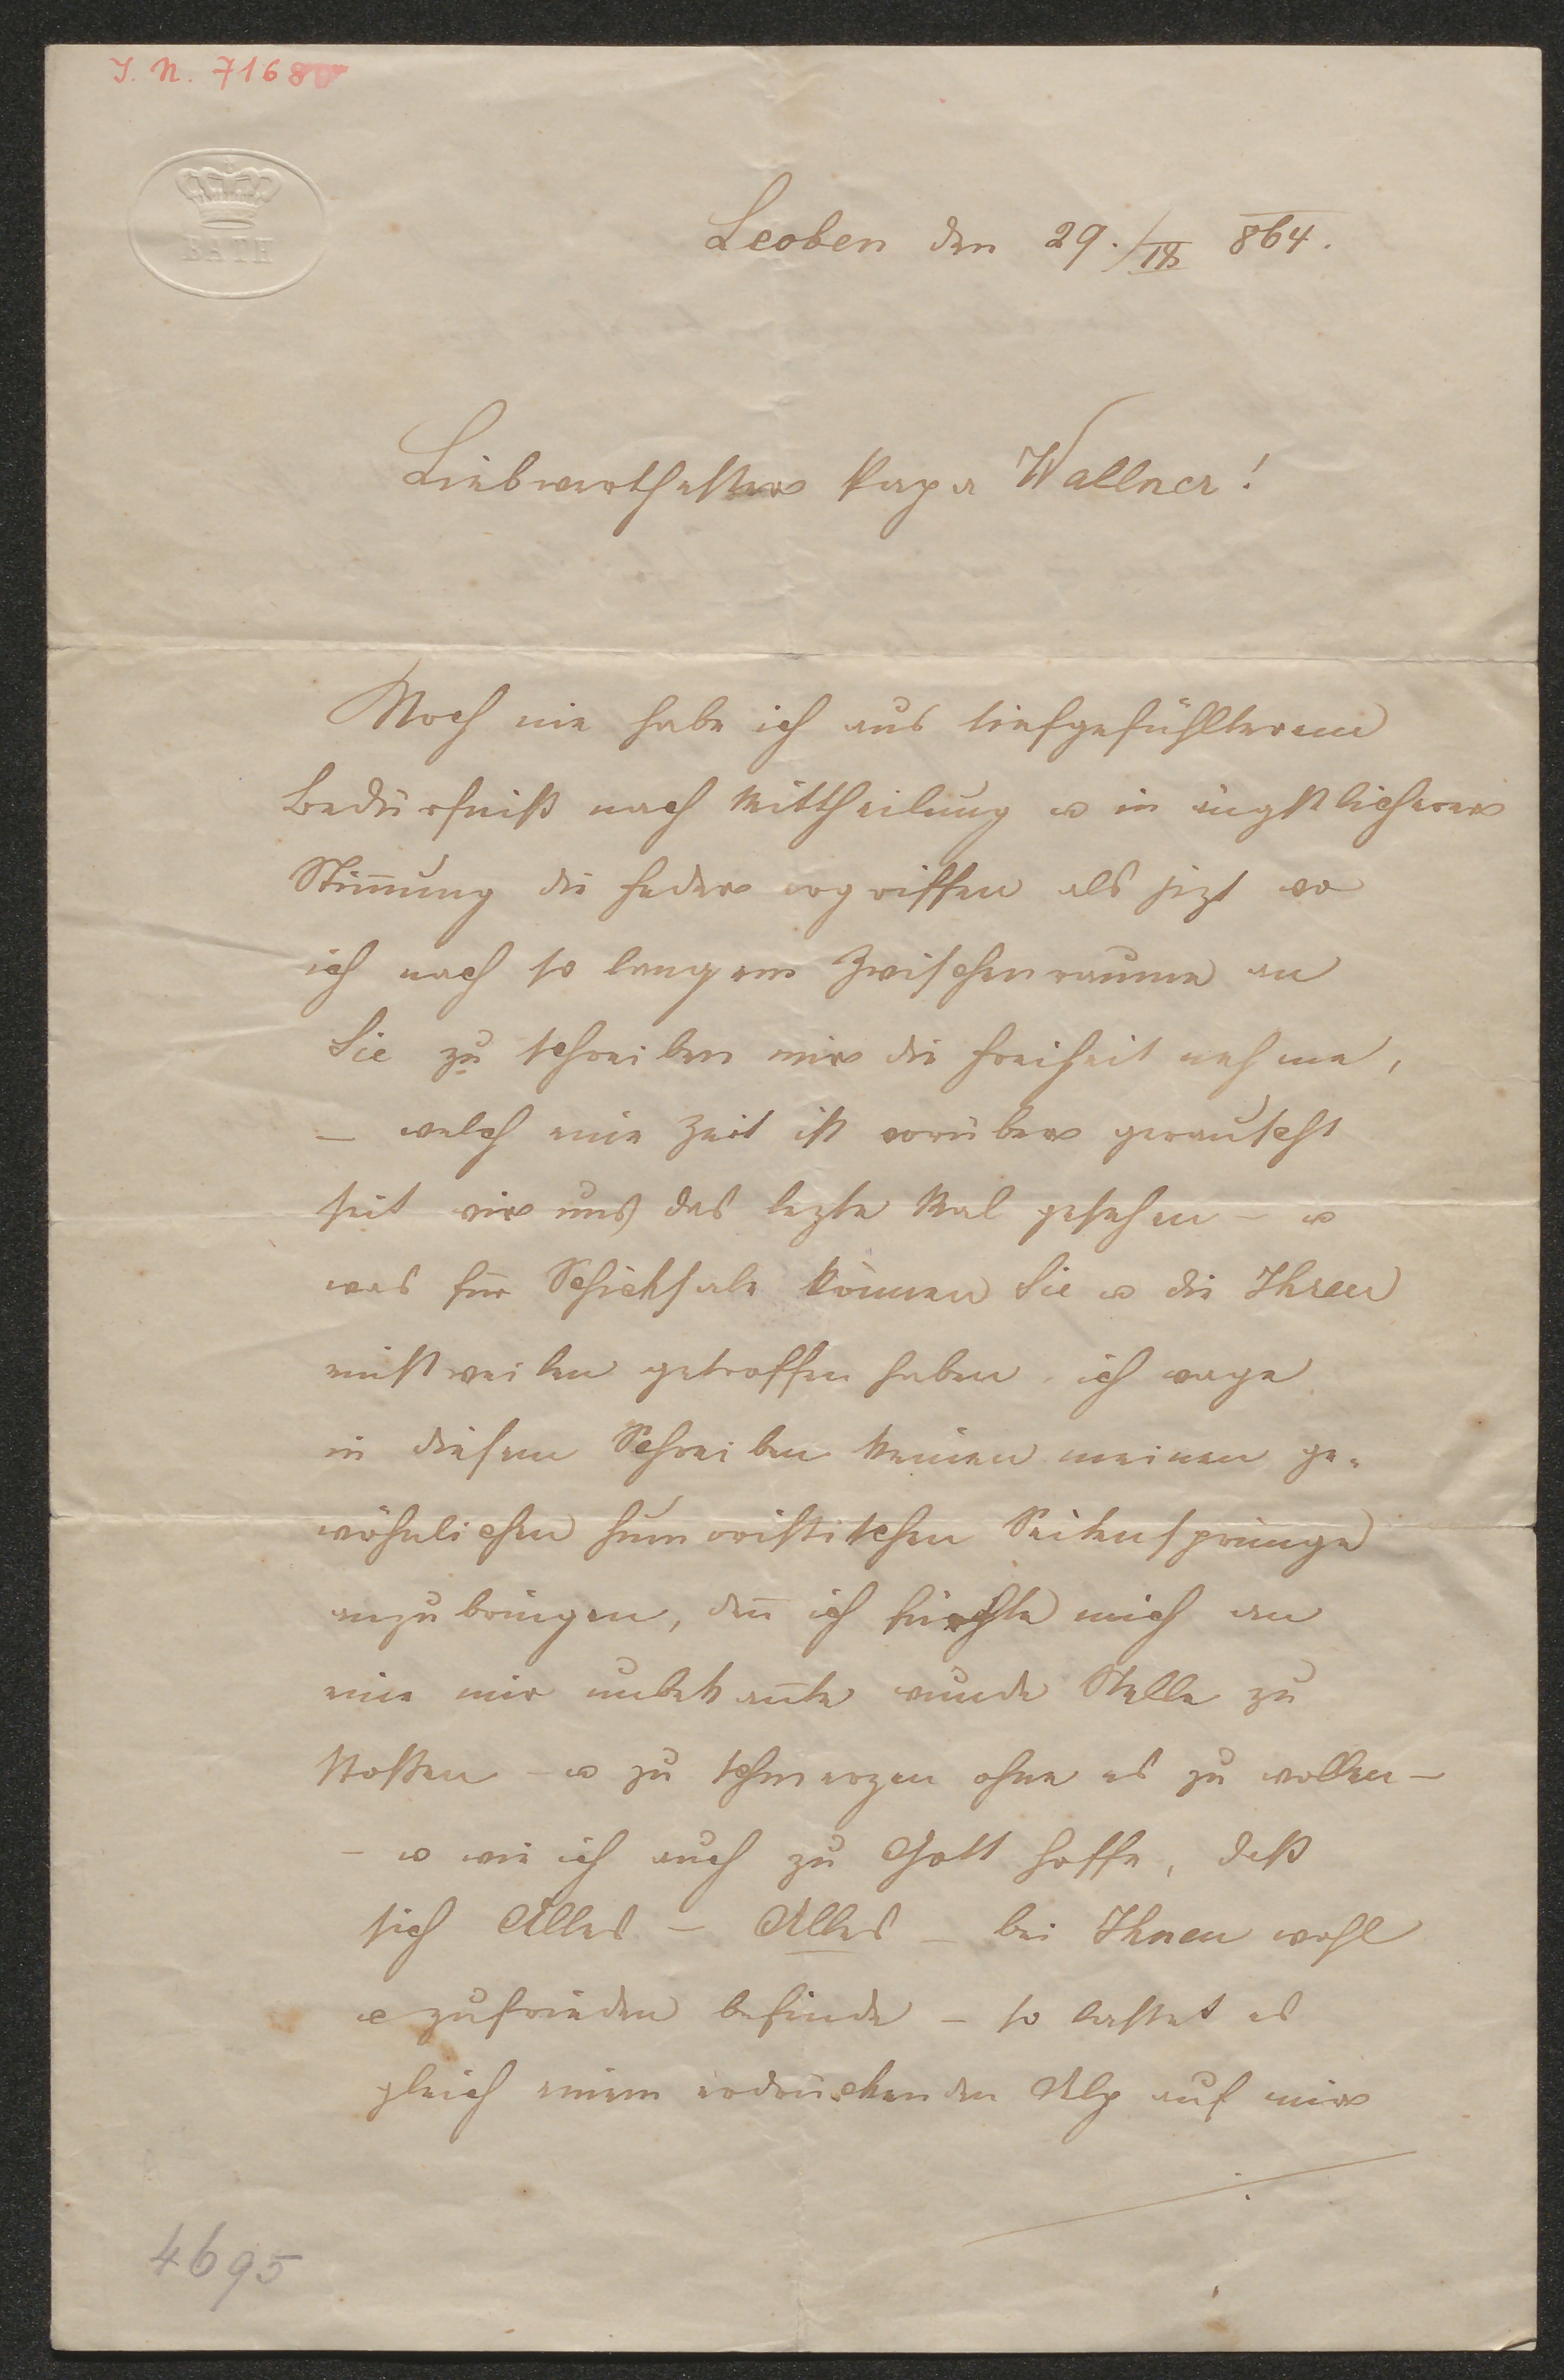 J. N. 71680
BATH
Leoben den 29./IX 864.
Liebwerthester Papa Wallner!
Noch nie habe ich aus tiefgefühlterem
Bedürfniß nach Mittheilung u in ängstlicherer
Stim̄ung die Feder ergriffen als jezt wo
ich nach so langem Zwischenraume an
Sie zu schreiben mir die Freiheit nehme,
– welch eine Zeit ist vorüber gerauscht
seit wir uns das lezte Mal gesehen – u
was für Schicksale können Sie u die Ihren
mittweilen getroffen haben, ich wage
in diesem Schreiben keinen meinen ge-
wöhnlichen humoristischen Seitensprünge
anzubringen, den̄ ich fürchte mich an
eine mir unbekan̄te wunde Stelle zu
stoßen – u zu schmerzen ohne es zu wollen –
– u wie ich auch zu Gott hoffe, daß
sich Alles – Alles – bei Ihnen wohl
u zufrieden befinde – so lastet es
gleich einem erdrückenden Alp auf mir
4695